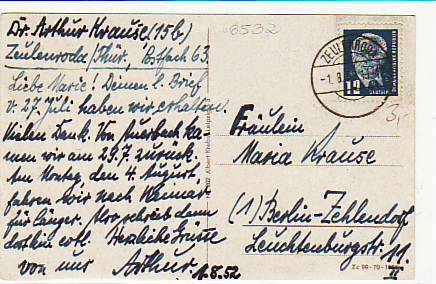 Dr. Arthur Krause (15b)
Zeulenroda/Thür., Postfach 63.
Liebe Marie! Deinen l. Brief
v. 27. Juli haben wir erhalten.
Vielen Dank. Von Auerbach ka-
men wir am 29.7. zurück.
Am Montag, den 4. August
fahren wir nach Weimar
für länger. Also schreib dann
dorthin evtl. Herzliche Grüsse
von uns Arthur.
1.8.52
6532
ZEULENRODA
-1.8.
12
DEUTSCHE
3,-
Fräulein
Maria Krause
(1) Berlin-Zehlendorf
Leuchtenburgstr. 11
II